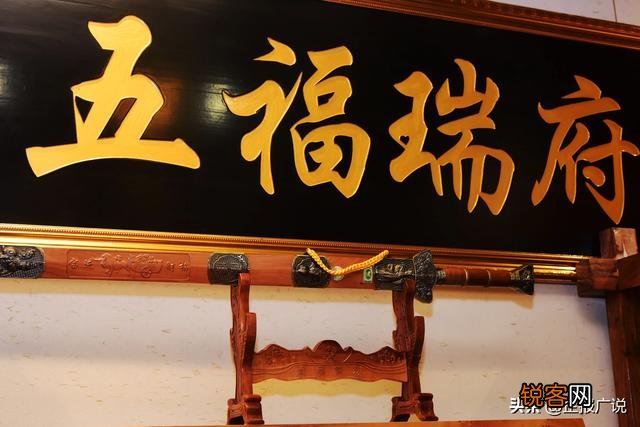 五福瑞府
锐客网
头条@正投广说